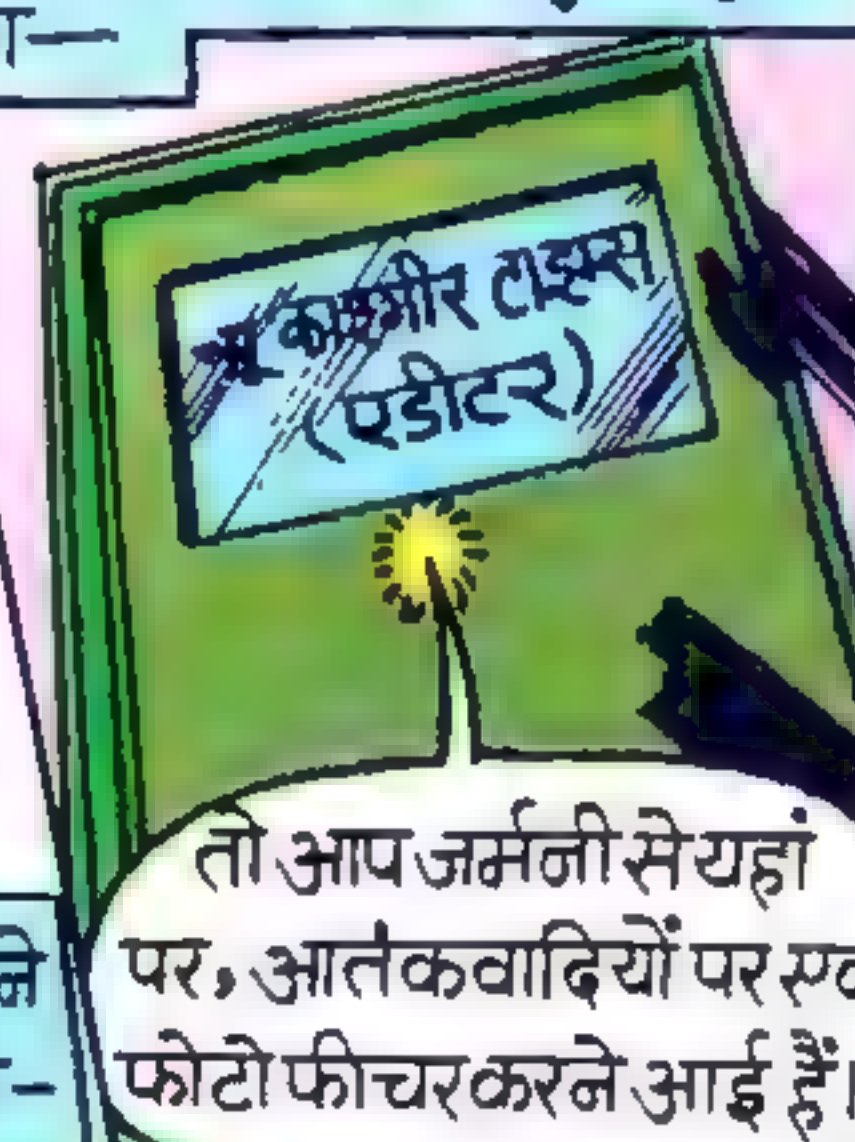 काश्मीर टाइम्स
(एडीटर)
तो आप जर्मनी से यहां
पर, आतंकवादियों पर
फोटो फीचर करने आई हैं।